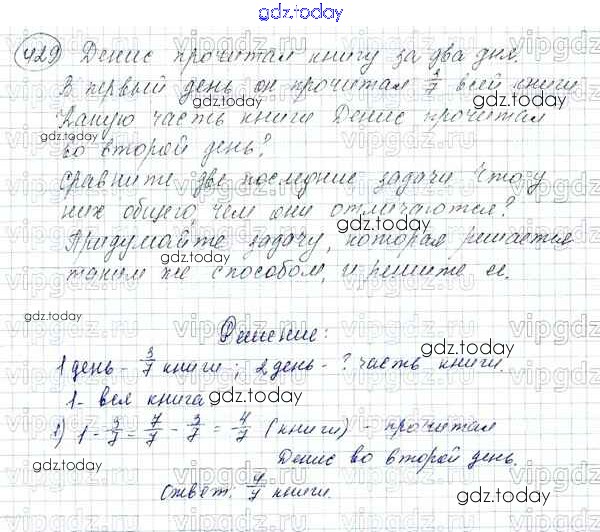 gdz.today
429 Денис прочитал книгу за два дня.
В первый день он прочитал 3/7 всей книги.
Какую часть книги Денис прочитал
во второй день?
Сравните две последние задачи. Что у
них общего, чем они отличаются?
Придумайте задачу, которая решается
таким же способом, и решите ее.
Решение:
1 день - 3/7 книги; 2 день - ? часть книги.
1 - вся книга
1) 1 - 3/7 = 7/7 - 3/7 = 4/7 (книги) - прочитал
Денис во второй день.
Ответ: 4/7 книги.